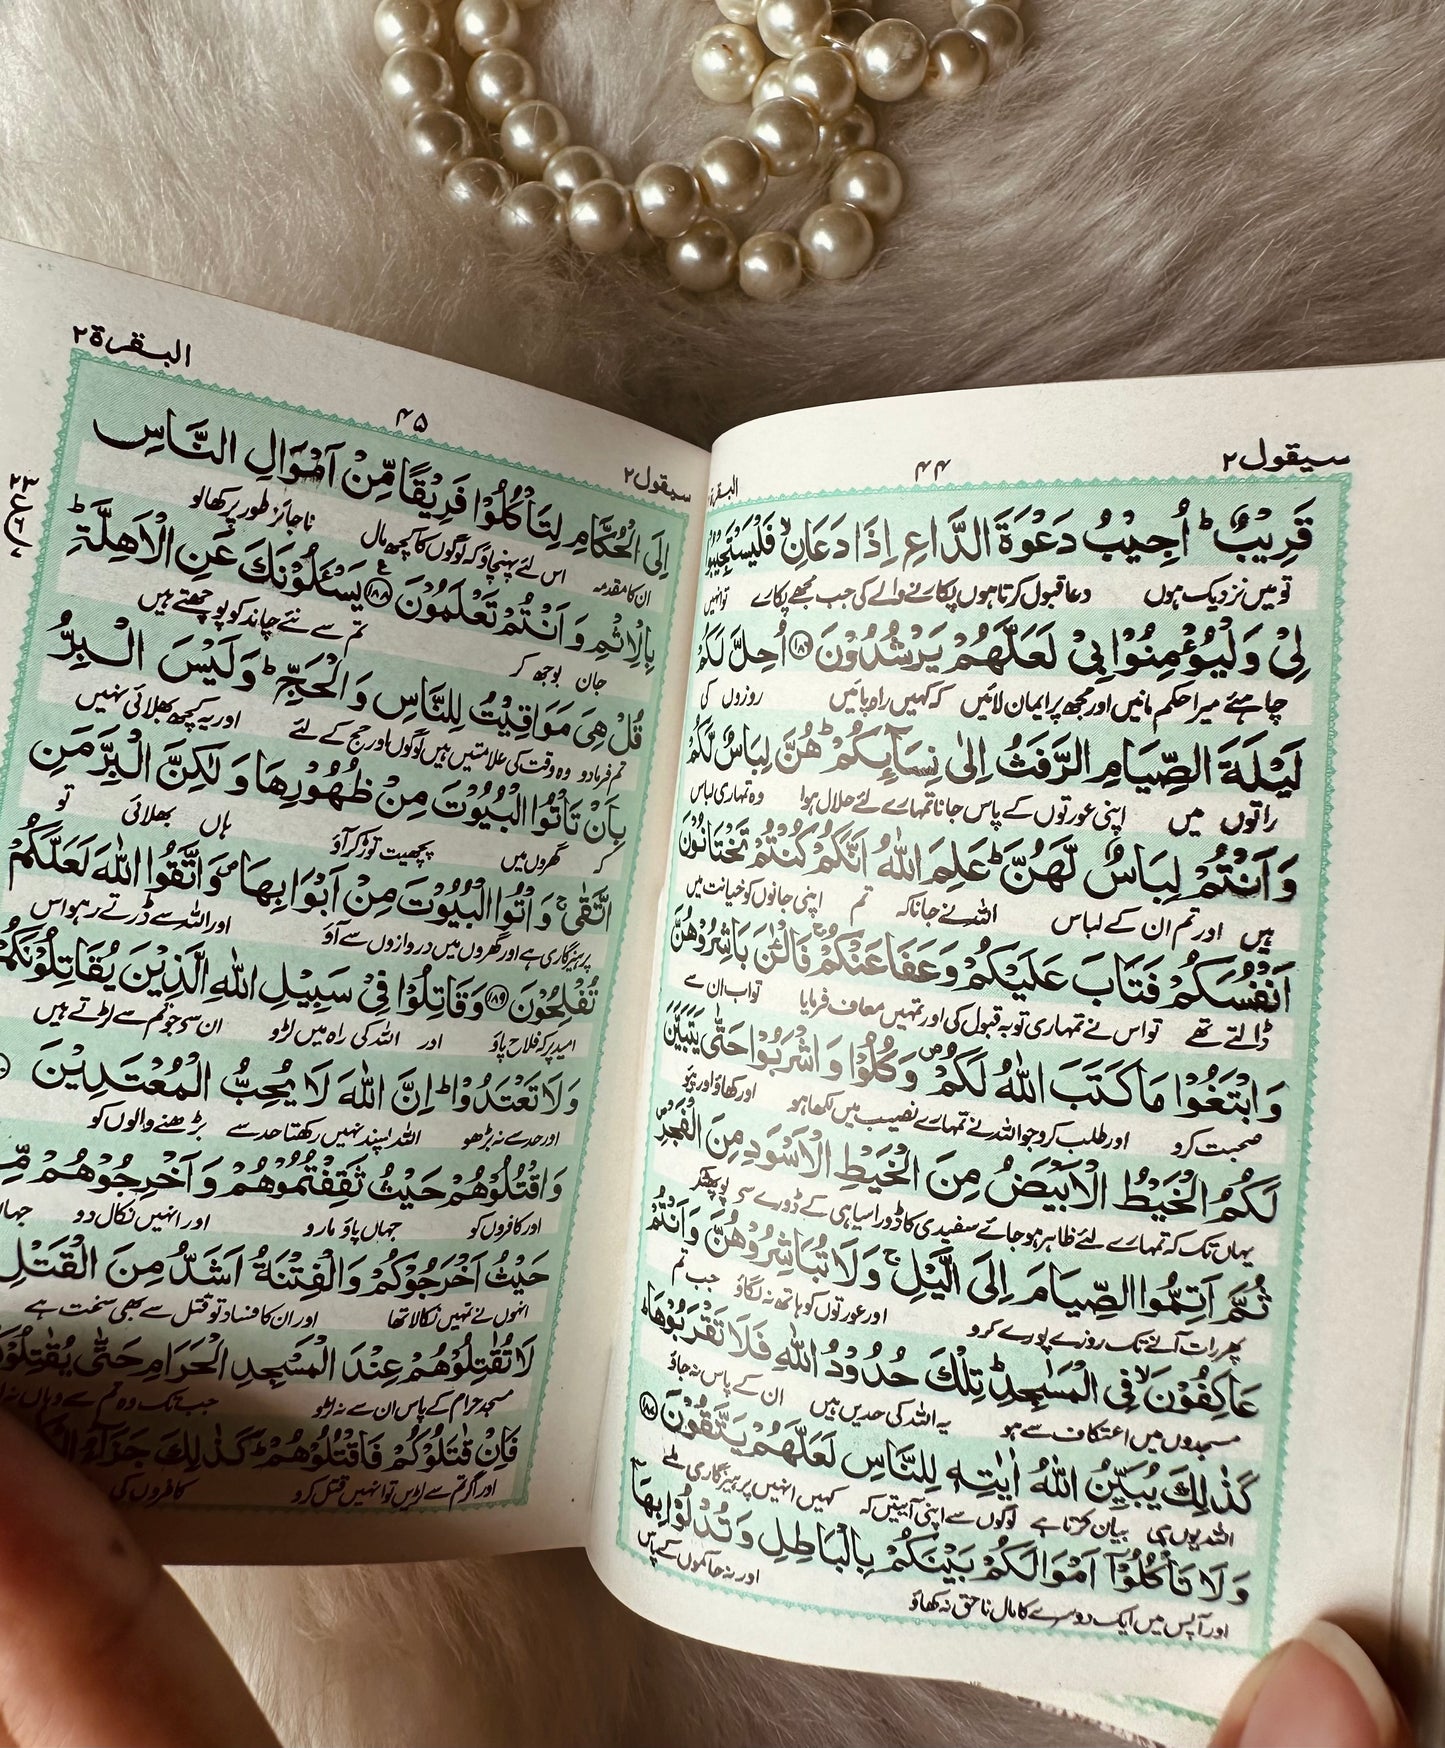 سیقول ۲
۴۴
البقرة
قَرِيْبٌ ؕ اُجِيْبُ دَعْوَةَ الدَّاعِ اِذَا دَعَانِ ۙ فَلْيَسْتَجِيْبُوْا
تو میں نزدیک ہوں دعا قبول کرتا ہوں پکارنے والے کی جب مجھے پکارے تو انہیں
لِيْ وَلْيُؤْمِنُوْا بِيْ لَعَلَّهُمْ يَرْشُدُوْنَ ﴿۱۸۶﴾ اُحِلَّ لَكُمْ
چاہئے میرا حکم مانیں اور مجھ پر ایمان لائیں کہ کہیں راہ پائیں روزوں کی
لَيْلَةَ الصِّيَامِ الرَّفَثُ اِلٰى نِسَآئِكُمْ ؕ هُنَّ لِبَاسٌ لَّكُمْ
راتوں میں اپنی عورتوں کے پاس جانا تمہارے لئے حلال ہوا وہ تمہاری لباس
وَاَنْتُمْ لِبَاسٌ لَّهُنَّ ؕ عَلِمَ اللّٰهُ اَنَّكُمْ كُنْتُمْ تَخْتَانُوْنَ
ہیں اور تم ان کے لباس اللہ نے جانا کہ تم اپنی جانوں کو خیانت میں
اَنْفُسَكُمْ فَتَابَ عَلَيْكُمْ وَعَفَا عَنْكُمْ ۚ فَالْـٰٔنَ بَاشِرُوْهُنَّ
ڈالتے تھے تو اس نے تمہاری توبہ قبول کی اور تمہیں معاف فرمایا تو اب ان سے
وَابْتَغُوْا مَا كَتَبَ اللّٰهُ لَكُمْ ۪ وَكُلُوْا وَاشْرَبُوْا حَتّٰى يَتَبَيَّنَ
صحبت کرو اور طلب کرو جو اللہ نے تمہارے نصیب میں لکھا ہو اور کھاؤ اور پیو
لَكُمُ الْخَيْطُ الْاَبْيَضُ مِنَ الْخَيْطِ الْاَسْوَدِ مِنَ الْفَجْرِ ۪
یہاں تک کہ تمہارے لئے ظاہر ہو جائے سفیدی کا ڈورا سیاہی کے ڈورے سے پو پھٹ کر
ثُمَّ اَتِمُّوا الصِّيَامَ اِلَى الَّيْلِ ۚ وَلَا تُبَاشِرُوْهُنَّ وَاَنْتُمْ
پھر رات آنے تک روزے پورے کرو اور عورتوں کو ہاتھ نہ لگاؤ جب تم
عَاكِفُوْنَ ۙ فِي الْمَسٰجِدِ ؕ تِلْكَ حُدُوْدُ اللّٰهِ فَلَا تَقْرَبُوْهَا ؕ
مسجدوں میں اعتکاف سے ہو یہ اللہ کی حدیں ہیں ان کے پاس نہ جاؤ
كَذٰلِكَ يُبَيِّنُ اللّٰهُ اٰيٰتِهٖ لِلنَّاسِ لَعَلَّهُمْ يَتَّقُوْنَ ﴿۱۸۷﴾
اللہ یوں ہی بیان کرتا ہے لوگوں سے اپنی آیتیں کہ کہیں انہیں پرہیزگاری ملے
وَلَا تَاْكُلُوْٓا اَمْوَالَكُمْ بَيْنَكُمْ بِالْبَاطِلِ وَتُدْلُوْا بِهَآ
اور آپس میں ایک دوسرے کا مال ناحق نہ کھاؤ اور نہ حاکموں کے پاس
سیقول ۲
۴۵
البقرة ۲
اِلَى الْحُكَّامِ لِتَاْكُلُوْا فَرِيْقًا مِّنْ اَمْوَالِ النَّاسِ
ان کا مقدمہ اس لئے پہنچاؤ کہ لوگوں کا کچھ مال ناجائز طور پر کھا لو
بِالْاِثْمِ وَاَنْتُمْ تَعْلَمُوْنَ ﴿۱۸۸﴾ يَسْـَٔلُوْنَكَ عَنِ الْاَهِلَّةِ ؕ
۲۳
ع
جان بوجھ کر تم سے نئے چاند کو پوچھتے ہیں
قُلْ هِيَ مَوَاقِيْتُ لِلنَّاسِ وَالْحَجِّ ؕ وَلَيْسَ الْبِرُّ
تم فرما دو وہ وقت کی علامتیں ہیں لوگوں اور حج کے لئے اور یہ کچھ بھلائی نہیں
بِاَنْ تَاْتُوا الْبُيُوْتَ مِنْ ظُهُوْرِهَا وَلٰكِنَّ الْبِرَّ مَنِ
کہ گھروں میں پچھیت توڑ کر آؤ ہاں بھلائی تو
اتَّقٰى ۚ وَاْتُوا الْبُيُوْتَ مِنْ اَبْوَابِهَا ۪ وَاتَّقُوا اللّٰهَ لَعَلَّكُمْ
پرہیزگاری ہے اور گھروں میں دروازوں سے آؤ اور اللہ سے ڈرتے رہو اس
تُفْلِحُوْنَ ﴿۱۸۹﴾ وَقَاتِلُوْا فِيْ سَبِيْلِ اللّٰهِ الَّذِيْنَ يُقَاتِلُوْنَكُمْ
امید پر کہ فلاح پاؤ اور اللہ کی راہ میں لڑو ان سے جو تم سے لڑتے ہیں
وَلَا تَعْتَدُوْا ؕ اِنَّ اللّٰهَ لَا يُحِبُّ الْمُعْتَدِيْنَ
اور حد سے نہ بڑھو اللہ پسند نہیں رکھتا حد سے بڑھنے والوں کو
وَاقْتُلُوْهُمْ حَيْثُ ثَقِفْتُمُوْهُمْ وَاَخْرِجُوْهُمْ مِّنْ
اور کافروں کو جہاں پاؤ مارو اور انہیں نکال دو
حَيْثُ اَخْرَجُوْكُمْ وَالْفِتْنَةُ اَشَدُّ مِنَ الْقَتْلِ
انہوں نے تمہیں نکالا تھا اور ان کا فساد تو قتل سے بھی سخت ہے
لَا تُقٰتِلُوْهُمْ عِنْدَ الْمَسْجِدِ الْحَرَامِ حَتّٰى
مسجد حرام کے پاس ان سے نہ لڑو جب تک وہ تم سے وہاں نہ
فَاِنْ قٰتَلُوْكُمْ فَاقْتُلُوْهُمْ ؕ كَذٰلِكَ جَزَآءُ
اور اگر تم سے لڑیں تو انہیں قتل کرو کافروں کی